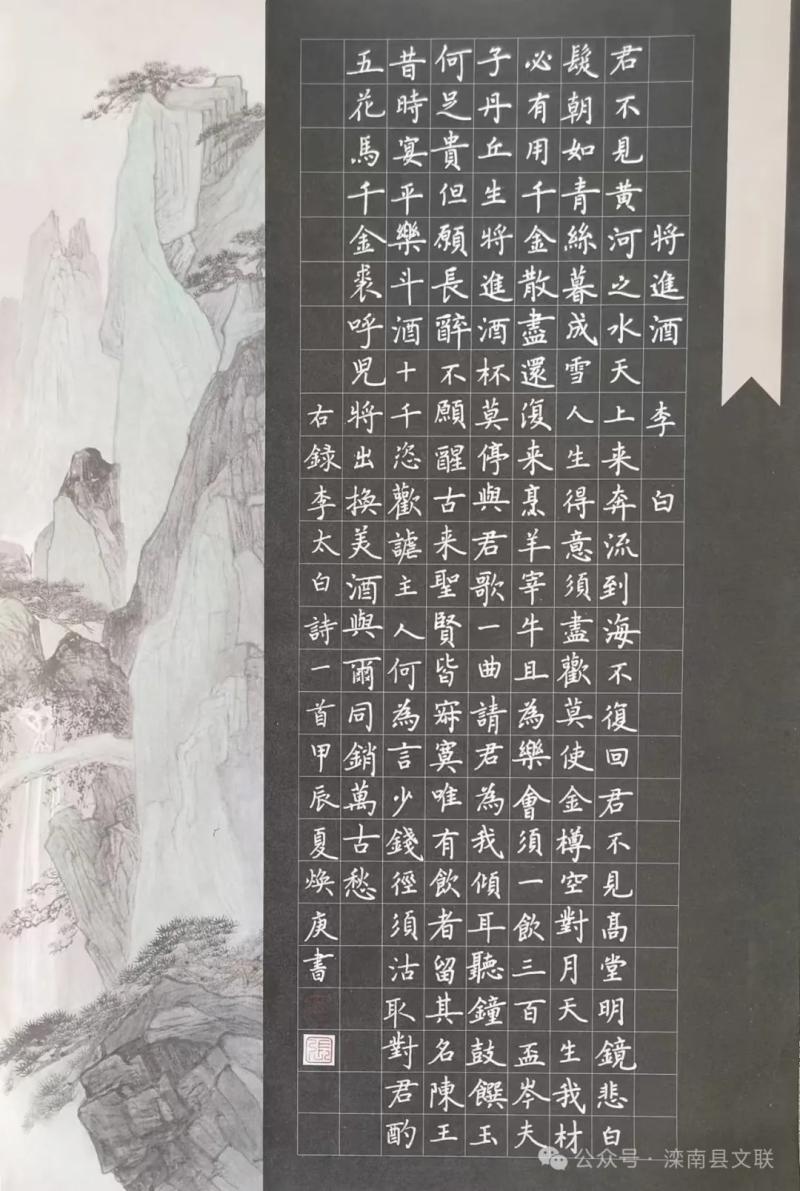 將進酒 李白
君不見黃河之水天上来奔流到海不復回君不見高堂明鏡悲白
髮朝如青絲暮成雪人生得意須盡歡莫使金樽空對月天生我材
必有用千金散盡還復来烹羊宰牛且為樂會須一飲三百盃岑夫
子丹丘生將進酒杯莫停與君歌一曲請君為我傾耳聽鐘鼓饌玉
何足貴但願長醉不願醒古来聖賢皆寂寞唯有飲者留其名陳王
昔時宴平樂斗酒十千恣歡謔主人何為言少錢徑須沽取對君酌
五花馬千金裘呼兒將出換美酒與爾同銷萬古愁
右録李太白詩一首甲辰夏煥庚書
公众号·滦南县文联